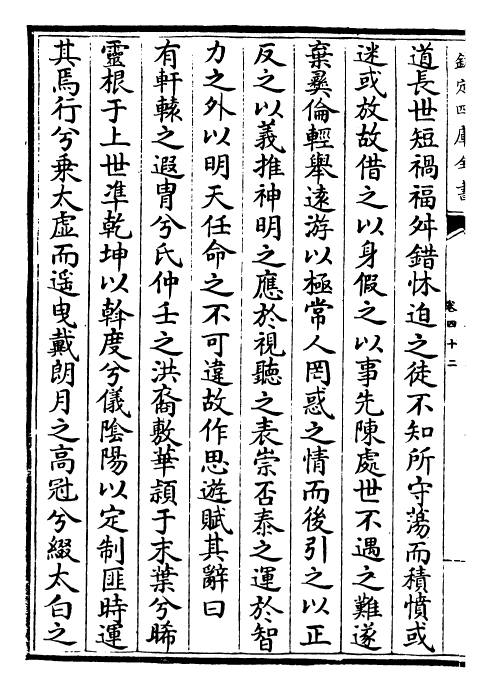 欽定四庫全書
卷四十二
道長世短禍福舛錯怵迫之徒不知所守蕩而積憤或
迷或放故借之以身假之以事先陳處世不遇之難遂
棄彞倫輕舉遠游以極常人罔惑之情而後引之以正
反之以義推神明之應於視聽之表崇否泰之運於智
力之外以明天任命之不可違故作思遊賦其辭曰
有軒轅之遐胄兮氏仲壬之洪裔敷華頴于末葉兮晞
靈根于上世準乾坤以斡度兮儀陰陽以定制匪時運
其焉行兮乘太虚而遥曳戴朗月之高冠兮綴太白之